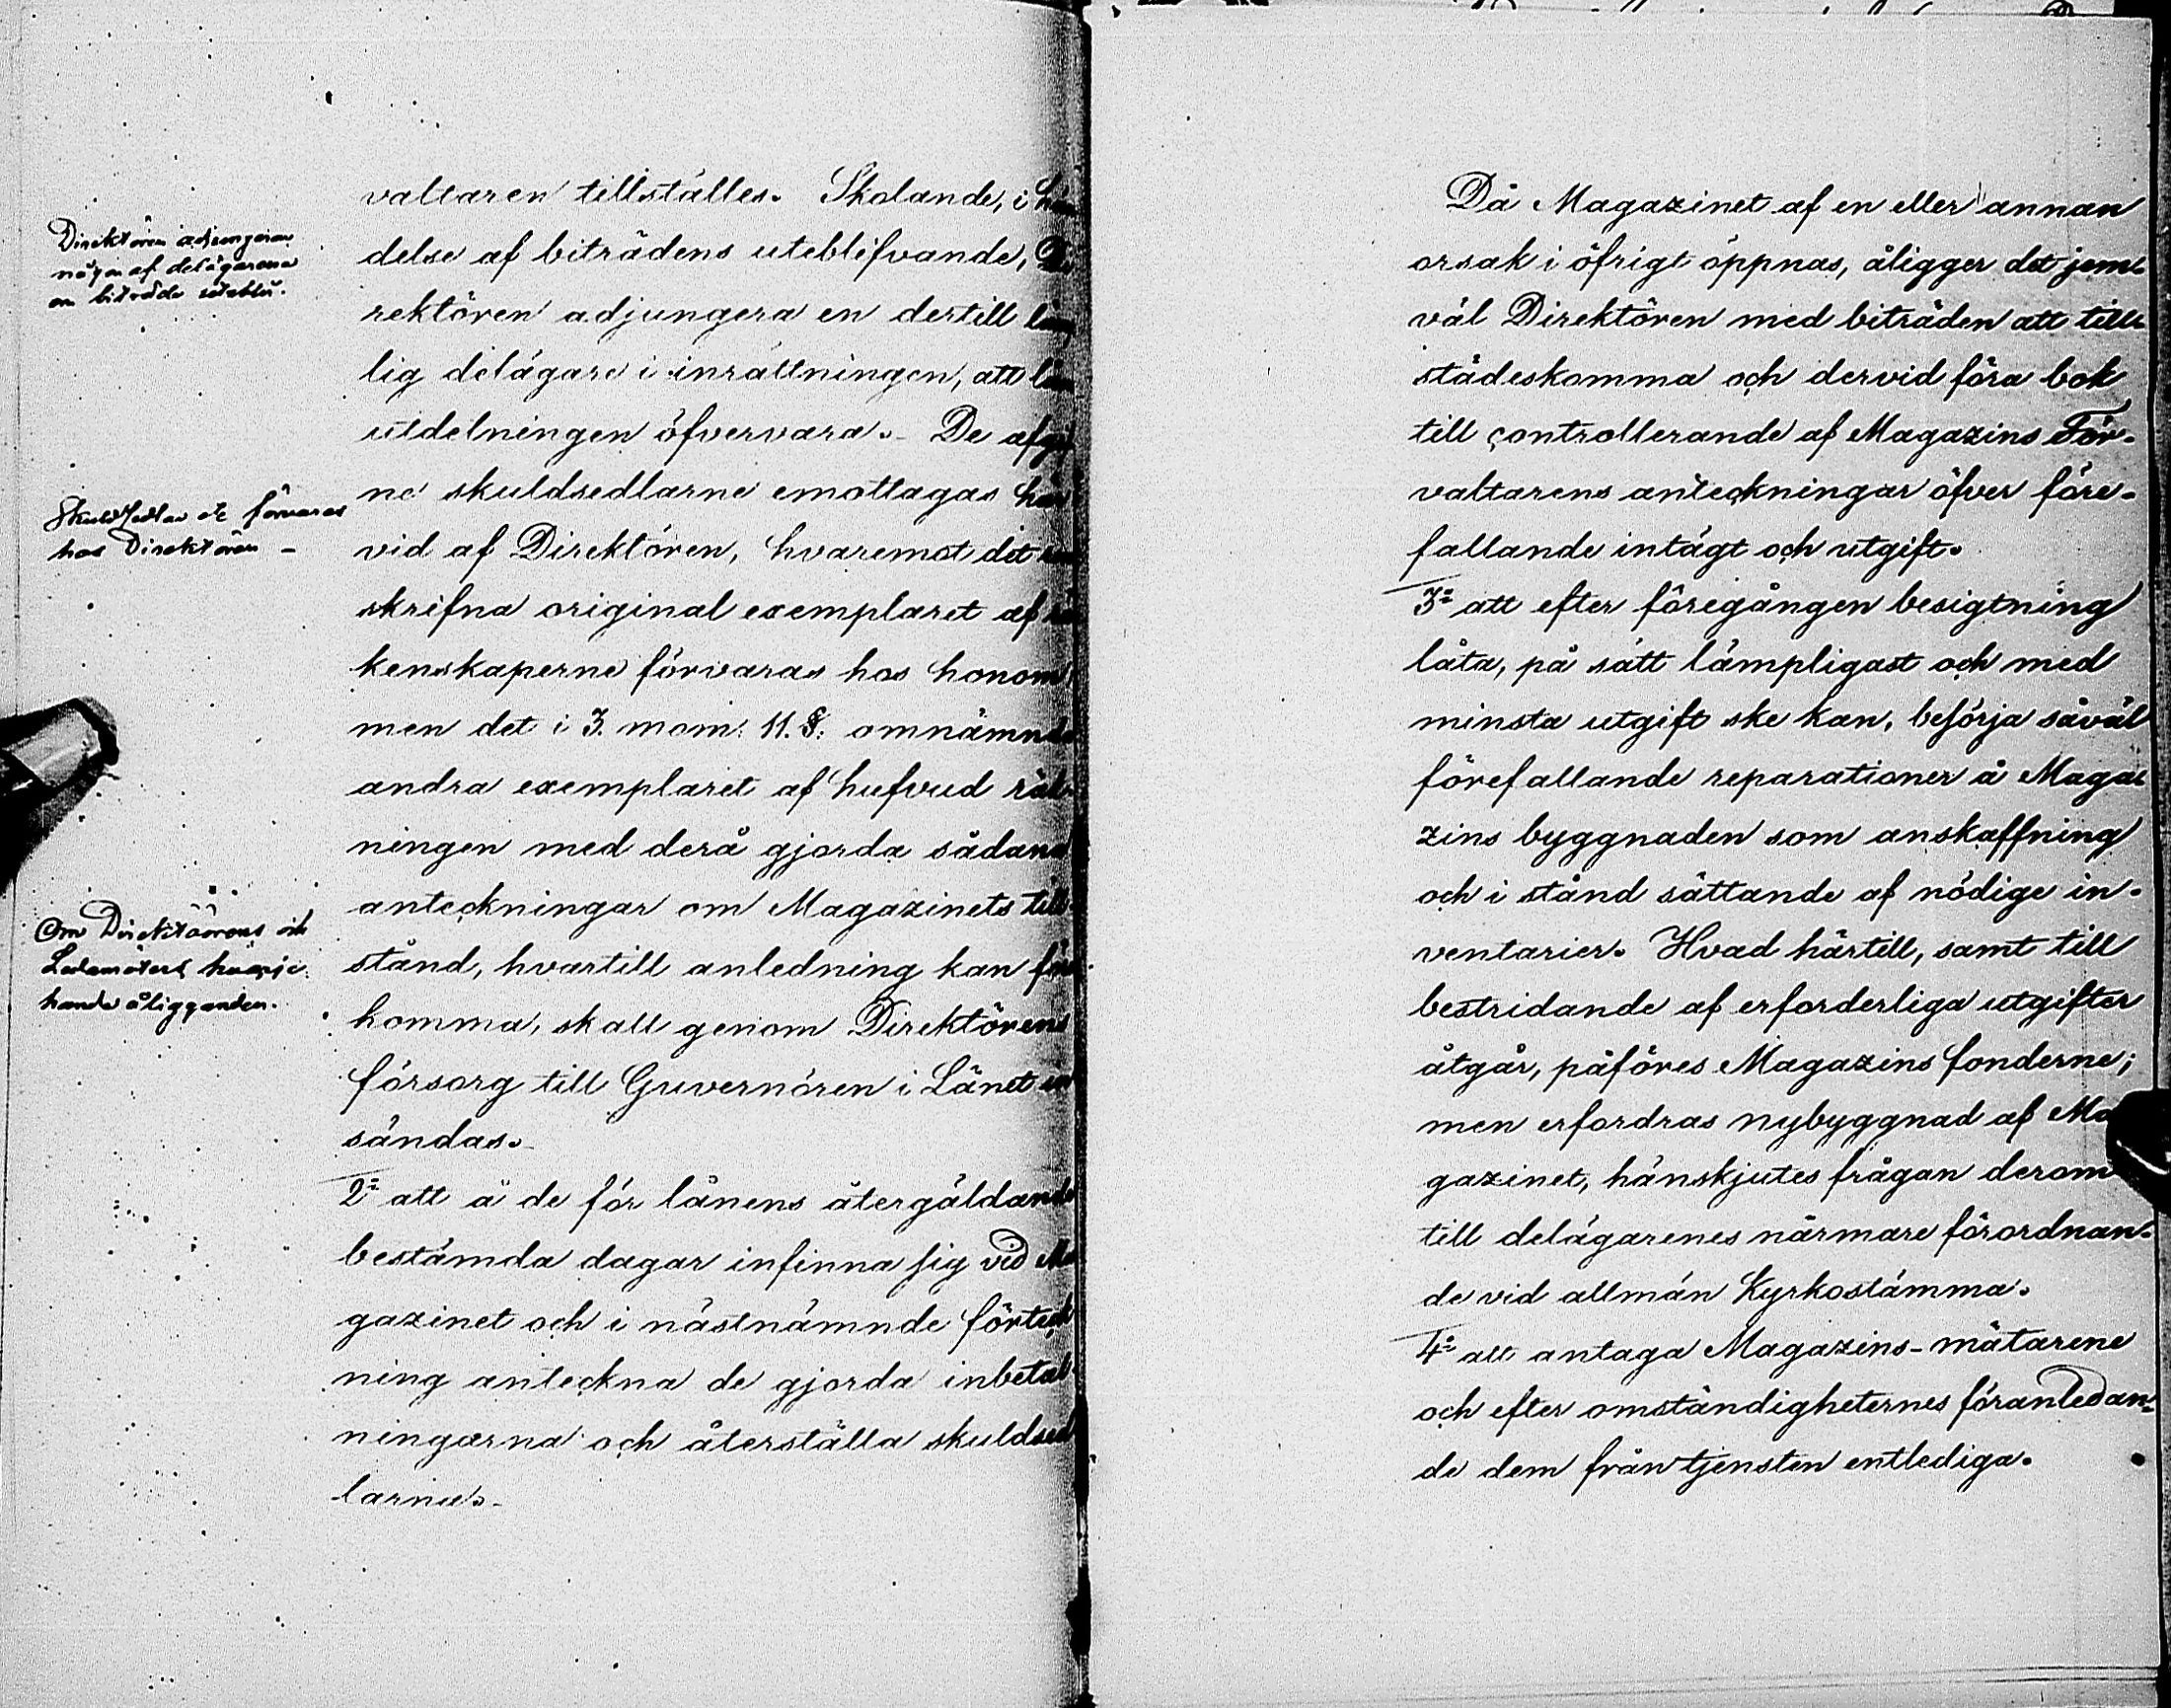 valtaren tillställes. Skolande, i hän
delse af biträdens uteblifvande, Di
rektören adjungera en dertill lämp
lig delägare i inrättningen, att lån
utdelningen öfvervara. De afgif
ne skuldsedlarne emottagas här
vid af Direktören, hvaremot det
skrifna original exemplaret af rä
kenskaperne förvaras hos honom
men det i 3. mom: 11. §: omnämnde
andra exemplaret af hufvud räk-
ningen med derå gjorda sådana
anteckningar om Magazinets till-
stånd, hvartill anledning kan före
komma, skall genom Direktörens
försorg till Guvernören i Länet in
sändas.
2= att å de för lånens återgäldande
bestämda dagar infinna sig vid Ma
gazinet och i nästnämnde förteck
ning anteckna de gjorda inbetal
ningarna och återställa skuldsed
larna.
Direktören adjungerar
någon af delägarena
om biträde utebli.
Skuldsedlar etc förvaras
hos Direktören -
Om Direktörens och
Ledamöters hvarje
handa åligganden.
Då Magazinet af en eller annan
orsak i öfrigt öppnas, åligger det jem-
väl Direktören med biträden att till-
städeskomma och dervid föra bok
till controllerande af Magazins För-
valtarens anteckningar öfver före-
fallande intägt och utgift.
3= att efter föregången besigtning
låta, på sätt lämpligast och med
minsta utgift ske kan, besörja såväl
förefallande reparationer å Maga-
zins byggnaden som anskaffning
och i stånd sättande af nödige in-
ventarier. Hvad härtill, samt till
bestridande af erforderliga utgifter
åtgår, påföres Magazins fonderne;
men erfordras nybyggnad af Ma
gazinet, hänskjutes frågan derom
till delägarenes närmare förordnan-
de vid allmän Kyrkostämma.
4= att antaga Magazins-mätarene
och efter omständigheternes föranledan-
de dem från tjensten entlediga.